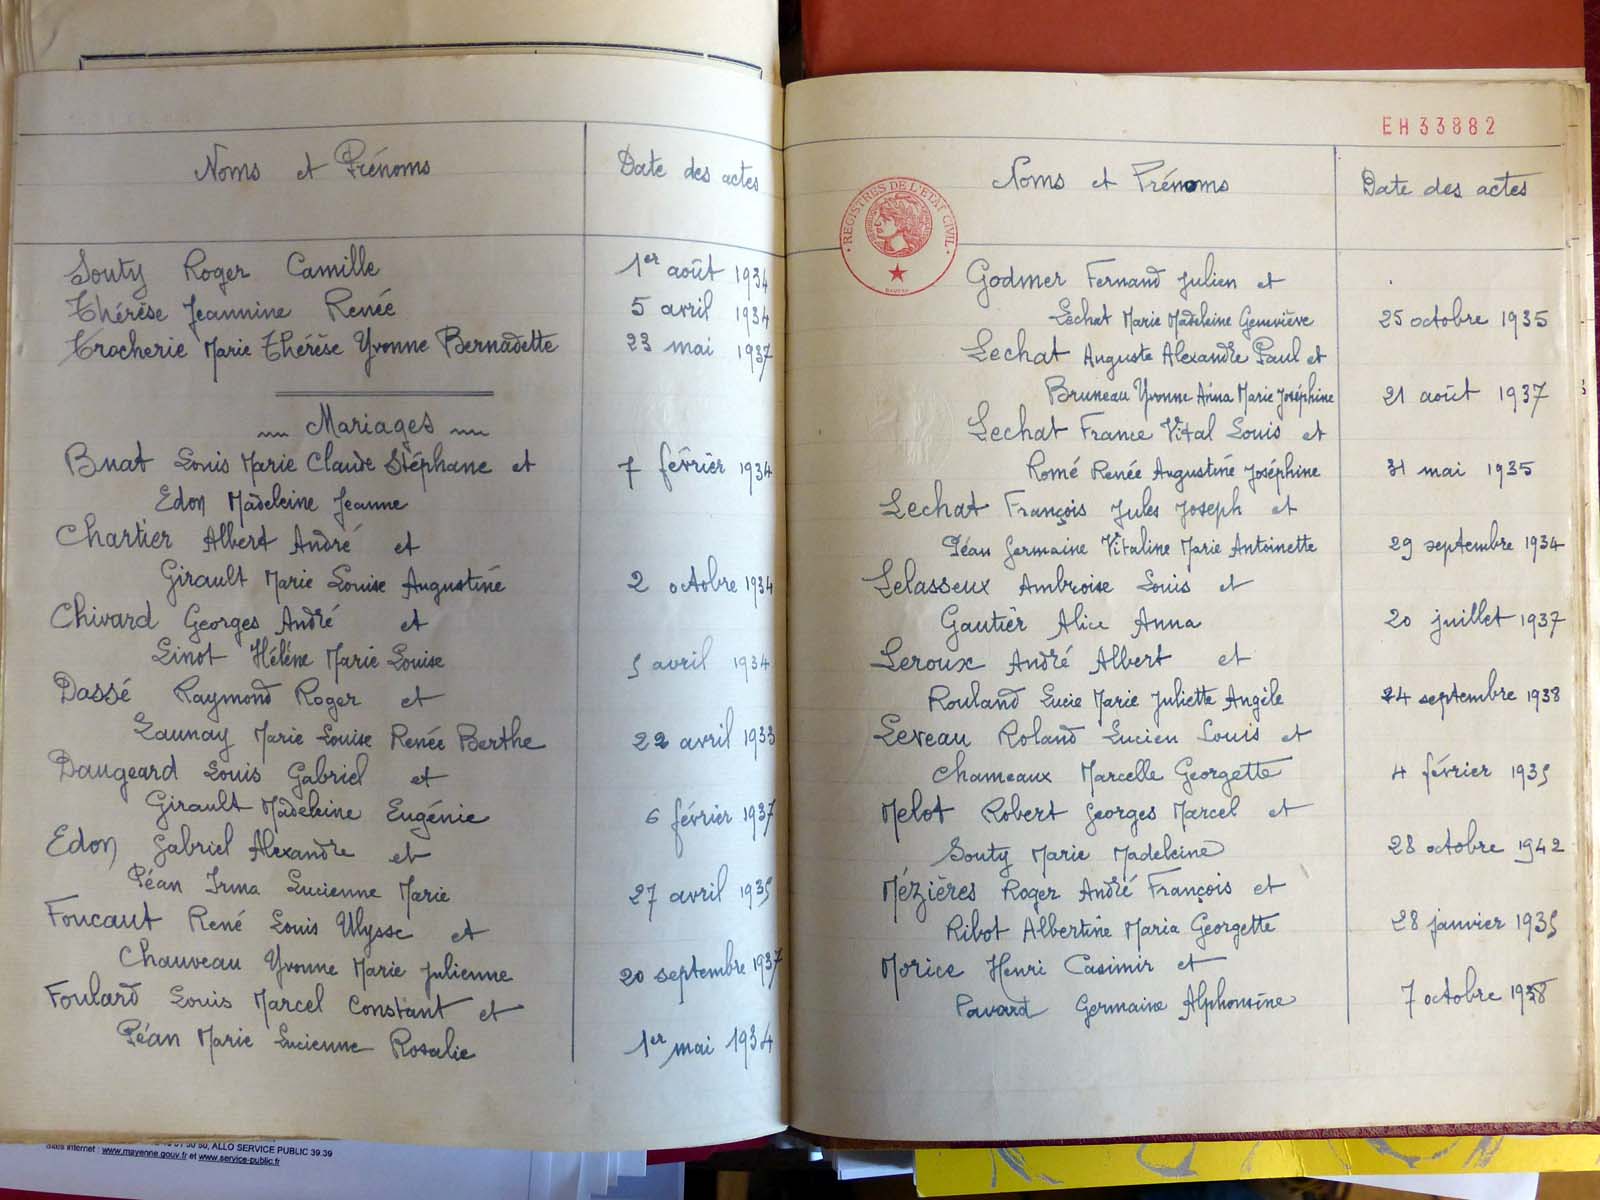 Noms et Prénoms
Date des actes
Souty Roger Camille 1er août 1934
Thérèse Jeannine Renée 5 avril 1934
Trocherie Marie Thérèse Yvonne Bernadette 23 mai 1937
Mariages
Buat Louis Marie Claude Stéphane et 7 février 1934
Edon Madeleine Jeanne
Chartier Albert André et
Girault Marie Louise Augustine 2 octobre 1934
Chivard Georges André et
Linot Hélène Marie Louise 5 avril 1934
Dassé Raymond Roger et
Launay Marie Louise Renée Berthe 22 avril 1933
Daugeard Louis Gabriel et
Girault Madeleine Eugénie 6 février 1937
Edon Gabriel Alexandre et
Péan Irma Lucienne Marie 27 avril 1935
Foucaut René Louis Ulysse et
Chauveau Yvonne Marie Julienne 20 septembre 1937
Foulard Louis Marcel Constant et
Péan Marie Lucienne Rosalie 1er mai 1934
EH 33882
Noms et Prénoms
Date des actes
REGISTRES DE L'ETAT CIVIL
Godmer Fernand Julien et
Lechat Marie Madeleine Geneviève 25 octobre 1935
Lechat Auguste Alexandre Paul et
Bruneau Yvonne Anna Marie Joséphine 21 août 1937
Lechat France Vital Louis et
Romé Renée Augustine Joséphine 31 mai 1935
Lechat François Jules Joseph et
Péan Germaine Vitaline Marie Antoinette 29 septembre 1934
Lelasseux Ambroise Louis et
Gautier Alice Anna 20 juillet 1937
Leroux André Albert et
Rouland Lucie Marie Juliette Angèle 24 septembre 1938
Leveau Roland Lucien Louis et
Chameaux Marcelle Georgette 4 février 1935
Melot Robert Georges Marcel et
Souty Marie Madeleine 28 octobre 1942
Mézières Roger André François et
Ribot Albertine Maria Georgette 28 janvier 1935
Morice Henri Casimir et
Pavard Germaine Alphonsine 7 octobre 1938
ALLO SERVICE PUBLIC 39.39
internet : www.mayenne.gouv.fr et www.service-public.fr